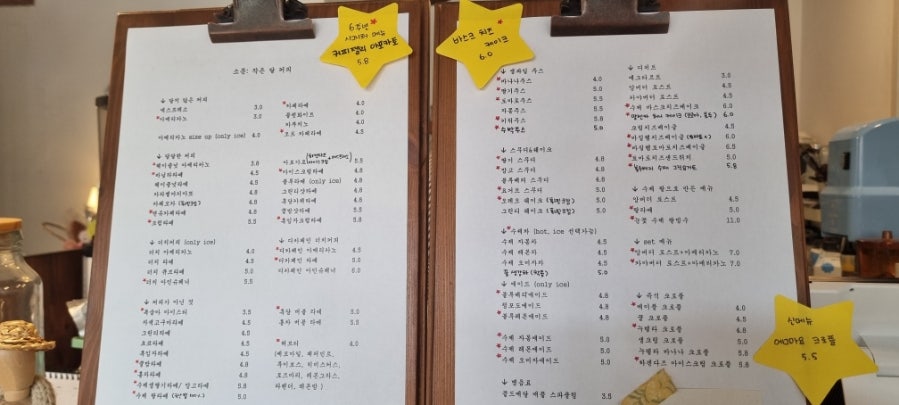 6주년
시그니처 메뉴
커피젤리 아포카토
5.8
소품: 작은 달 커피
↓ 달지 않은 커피
에스프레소 3.0
*아메리카노 3.0
아메리카노 size up (only ice) 4.0
*카페라떼 4.0
플랫화이트 4.0
카푸치노 4.0
4.5
↓ 달달한 커피
*헤이즐넛 아메리카노 3.8
*바닐라라떼 4.5
헤이즐넛라떼 4.5
4.8
5.0
*연유카페라떼 4.8
5.5
5.5
*아이스크림라떼 4.8
(only ice) 4.8
그린티샷라떼 5.0
흑당카페라떼 4.8
5.5
5.8
↓ 더치커피 (only ice)
더치 아메리카노 4.0
더치 라떼 4.5
더치 큐브라떼 5.0
*더치 아인슈페너 5.5
↓ 디카페인 더치커피
*디카페인 아메리카노 4.5
*디카페인 라떼 5.0
디카페인 아인슈페너 6.0
↓ 커피가 아닌 것
*복숭아 아이스티 3.5
자색고구마라떼 4.5
그린티라떼 4.5
초코라떼 4.5
흑임자라떼 4.5
4.5
*홍차라떼 4.5
5.8
5.0
*흑당 버블 라떼 5.0
홍차 버블 라떼 5.5
*허브티 4.0
(캐모마일, 페퍼민트,
루이보스, 히비스커스,
로즈마리, 레몬그라스,
라벤더, 레몬밤)
바스크 치즈
케이크
6.0
↓ 생과일 주스
*바나나주스 4.0
*딸기주스 5.0
*토마토주스 5.5
자몽주스 5.5
*키위주스 5.0
*수박주스 5.0
↓ 스무디&쉐이크
*딸기 스무디 4.8
*망고 스무디 4.8
블루베리 스무디 4.8
*요거트 스무디 5.0
*오레오 쉐이크 5.0
그린티 쉐이크 5.0
↓ 수제차 (hot, ice 선택가능)
수제 자몽차 4.5
수제 레몬차 4.5
수제 오미자차 4.5
5.0
↓ 에이드 (only ice)
*블루베리에이드 4.8
청포도에이드 4.8
*블루레몬에이드 4.8
*수제 자몽에이드 5.0
*수제 레몬에이드 5.0
*수제 오미자에이드 5.0
↓ 병음료
골드메달 애플 스파클링 3.5
↓ 디저트
에그타르트 3.0
앙버터 토스트 4.5
카야버터 토스트 4.5
*수제 바스크치즈케이크 6.0
6.0
크림치즈베이글 4.5
6.5
6.5
*토마토치즈샌드위치 5.0
5.8
↓ 수제 팥으로 만든 메뉴
앙버터 토스트 4.5
*팥라떼 5.0
*눈꽃 수제 팥빙수 11.0
↓ set 메뉴
*앙버터 토스트+아메리카노 7.0
*카야버터 토스트+아메리카노 7.0
↓ 즉석 크로플
*메이플 크로플 4.5
꿀 크로플 4.5
*누텔라 크로플 4.8
생크림 크로플 5.0
누텔라 바나나 크로플 5.8
*하겐다즈 아이스크림 크로플 5.8
신메뉴
에그마요 크로플
5.5